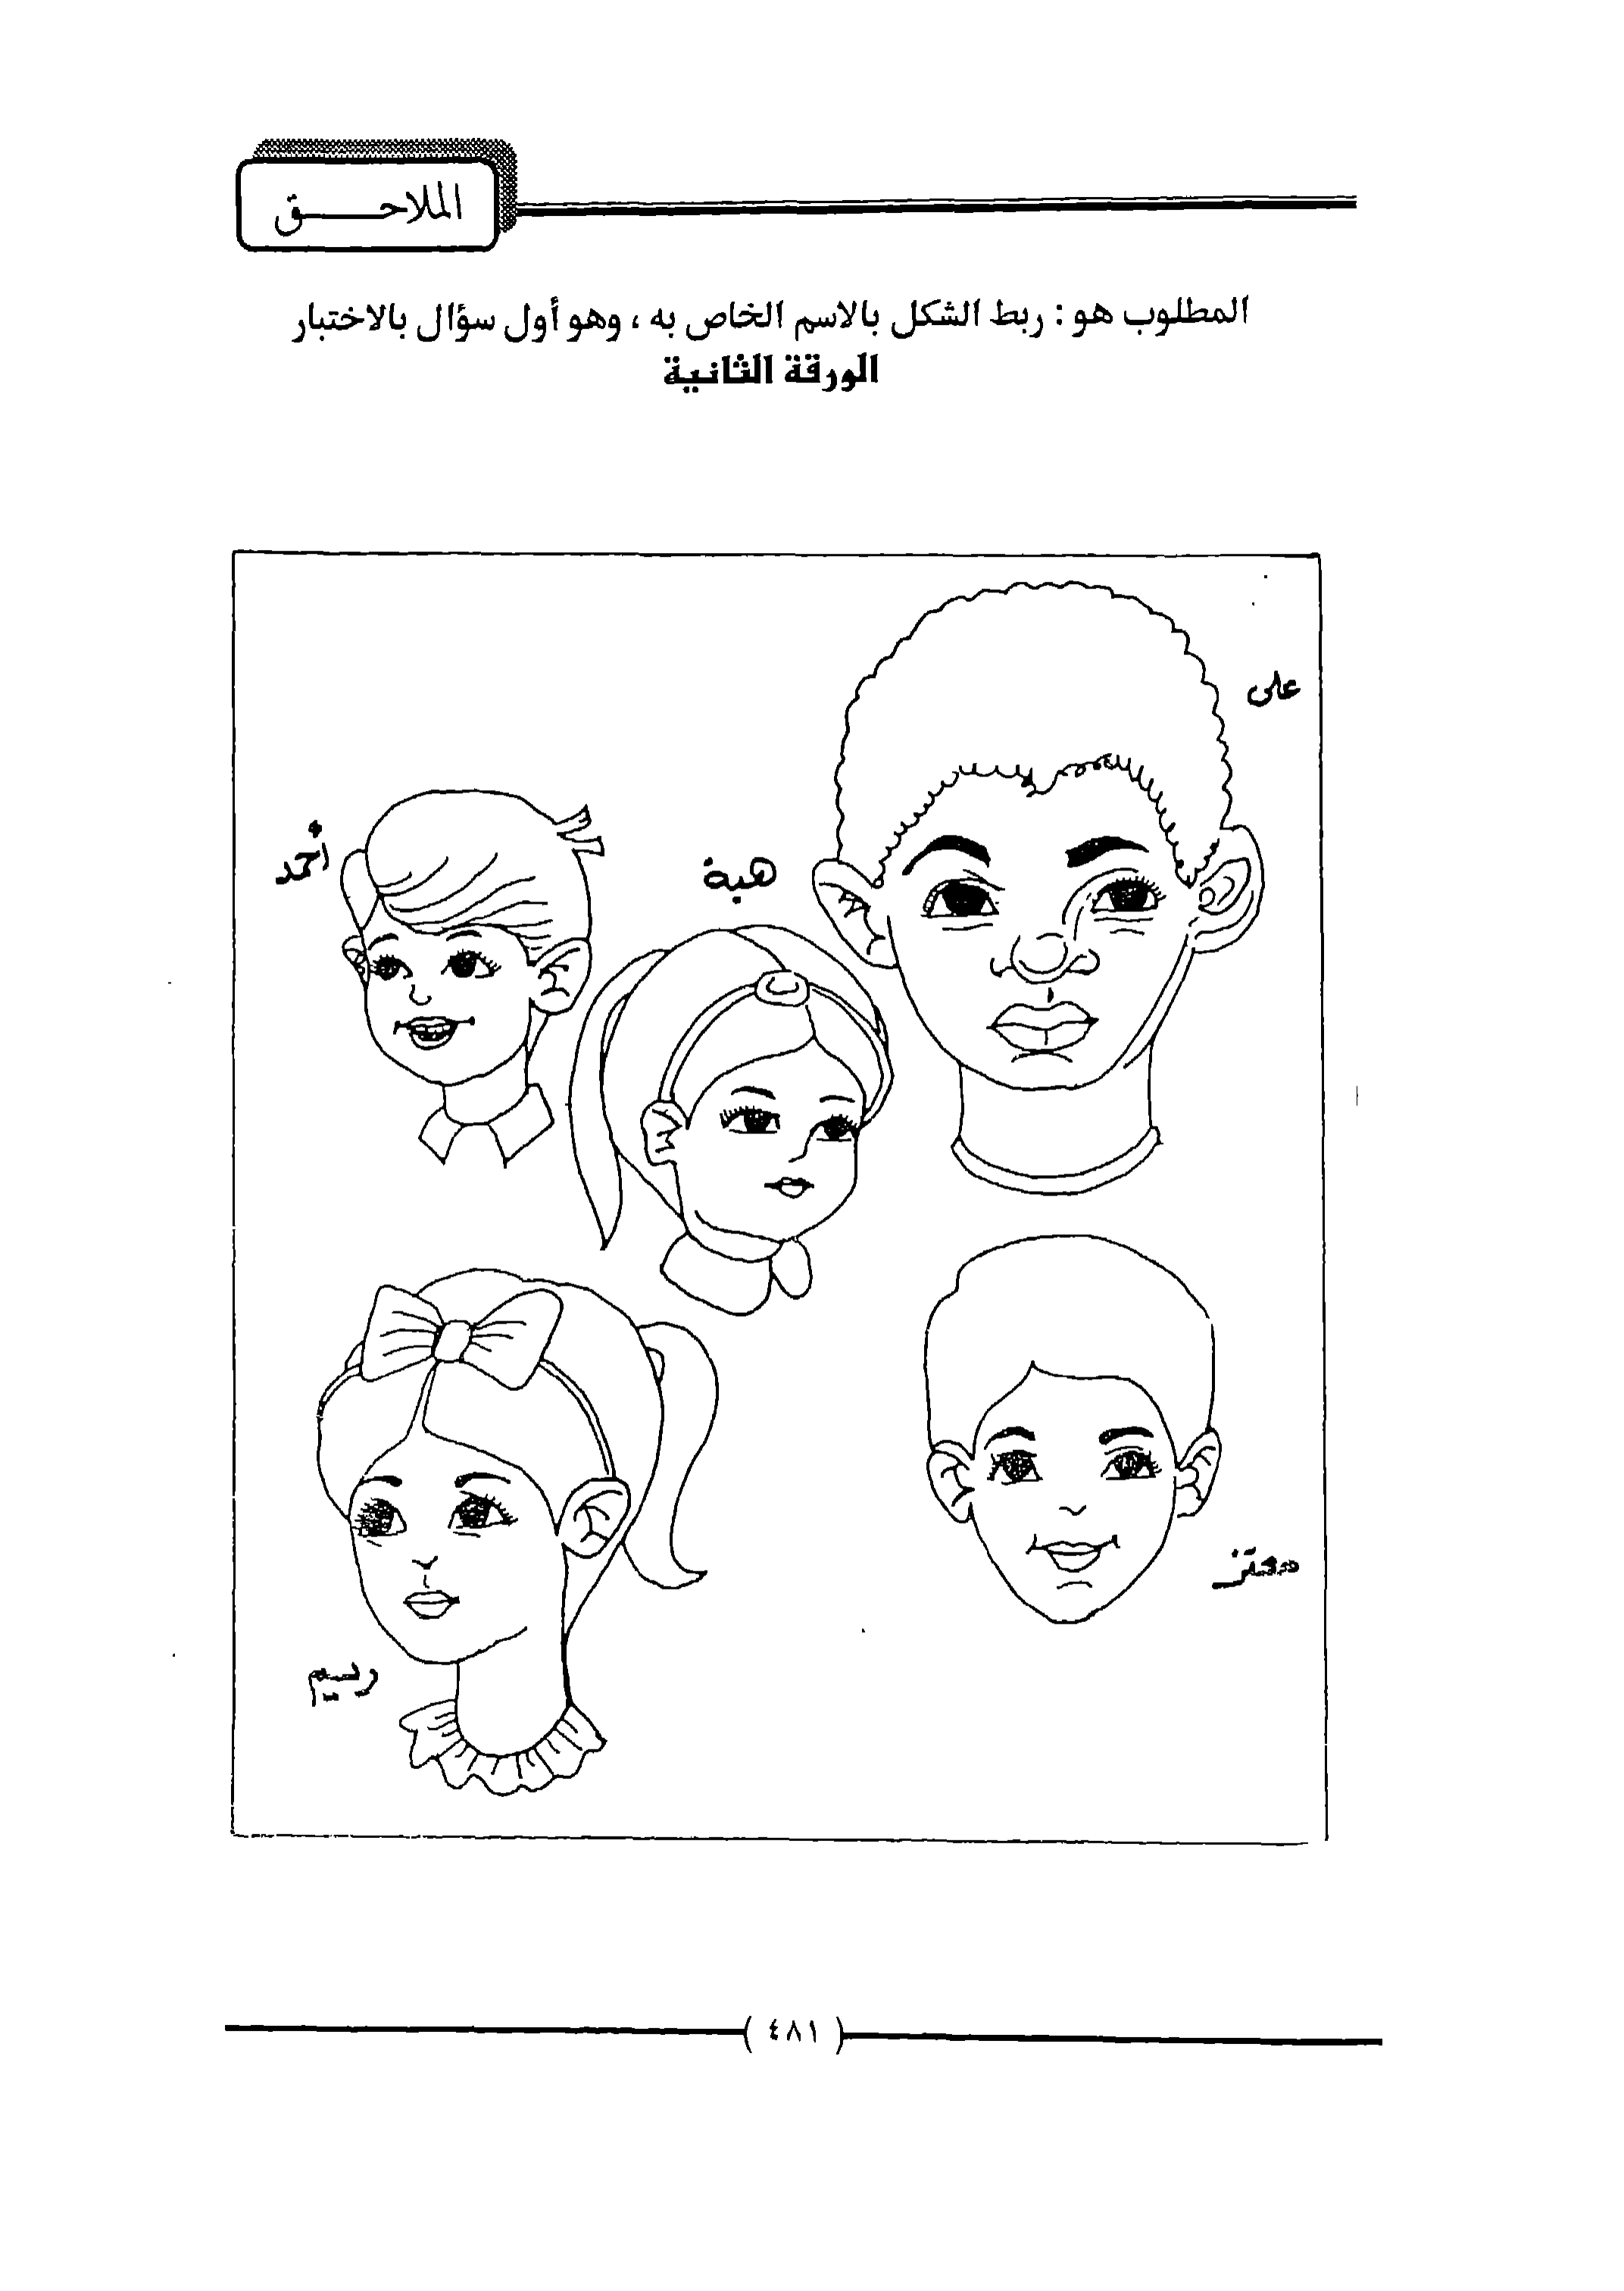 الملاحـــــق
المطلوب هو : ربط الشكل بالاسم الخاص به ، وهو أول سؤال بالاختبار
الورقة الثانية
على
أحمد
هبة
معتز
ريم
( ٤٨١ )